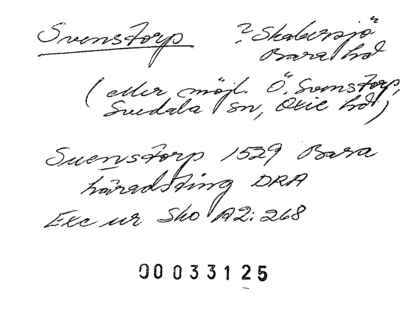 Svenstorp ? "Skabersjö"
Bara hd
(eller möjl. Ö. Svenstorp,
Svedala sn, Oxie hd,)
Suenstorp 1529 Bara
häradsting DRA
Exc ur Sko A2: 268
00033125